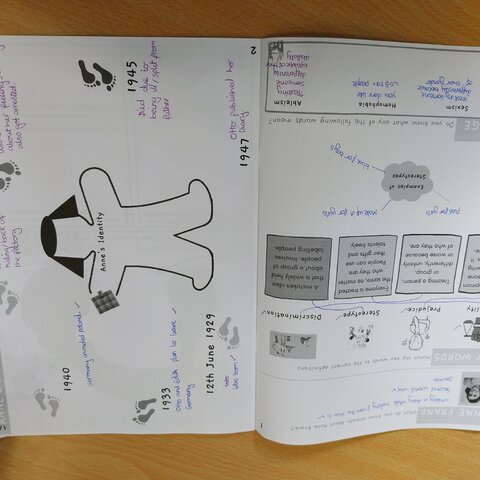 2
about her feelings
also got arrested
hiding/back of
1945
Died due to
being ill/split from
father
Otto published her
Diary
1947
Anne's Identity
1940
Germany invaded poland
1933
Otto and Edith plan to leave
Germany
12th June 1929
was born
1
ANNE FRANK
What do you know already about Anne Frank?
writing a diary whilst hiding from the
Second world war
KEY WORDS
Match the key words to the correct definitions
Prejudice
Stereotype
Discrimination
Treating a person,
or group,
differently, unfairly
or worse because
of who they are.
Everyone is treated
the same, no matter
who they are
and their gifts and
talents freely.
A mistaken idea
that is widely held
about a group of
people. Involves
labelling people.
Examples of
Stereotypes
Pink for girls
Make up is for girls
blue for boys
Do you know what any of the following words mean?
Sexism
treating someone
differently because
of their gender
Homophobia
you dont like
LGB+ people
Ableism
Treating
someone
differently
because of their
ability